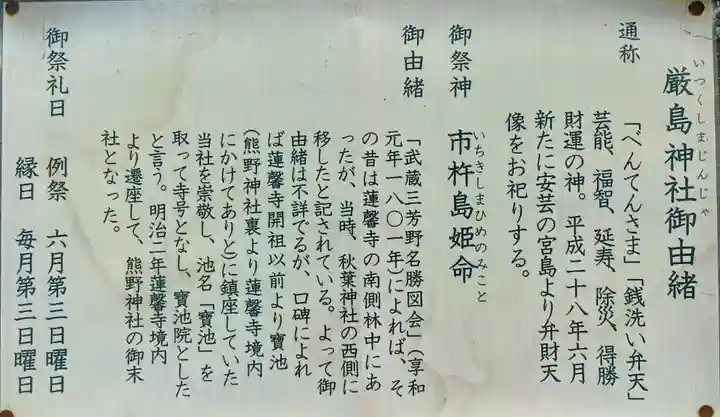 いつくしまじんじゃ
厳島神社御由緒
通称
「べんてんさま」「銭洗い弁天」
芸能、福智、延寿、除災、得勝
財運の神。平成二十八年六月
新たに安芸の宮島より弁財天
像をお祀りする。
御祭神
いちきしまひめのみこと
市杵島姫命
御由緒
「武蔵三芳野名勝図会」(享和
元年一八〇一年)によれば、そ
の昔は蓮馨寺の南側林中にあ
ったが、当時、秋葉神社の西側に
移したと記されている。よって御
由緒は不詳でるが、口碑によれ
ば蓮馨寺開祖以前より寶池
(熊野神社裏より蓮馨寺境内
にかけてありと)に鎮座していた
当社を崇敬し、池名「寶池」を
取って寺号となし、寶池院とした
と言う。明治二年蓮馨寺境内
より遷座して、熊野神社の御末
社となった。
御祭礼日
例祭 六月第三日曜日
縁日 毎月第三日曜日